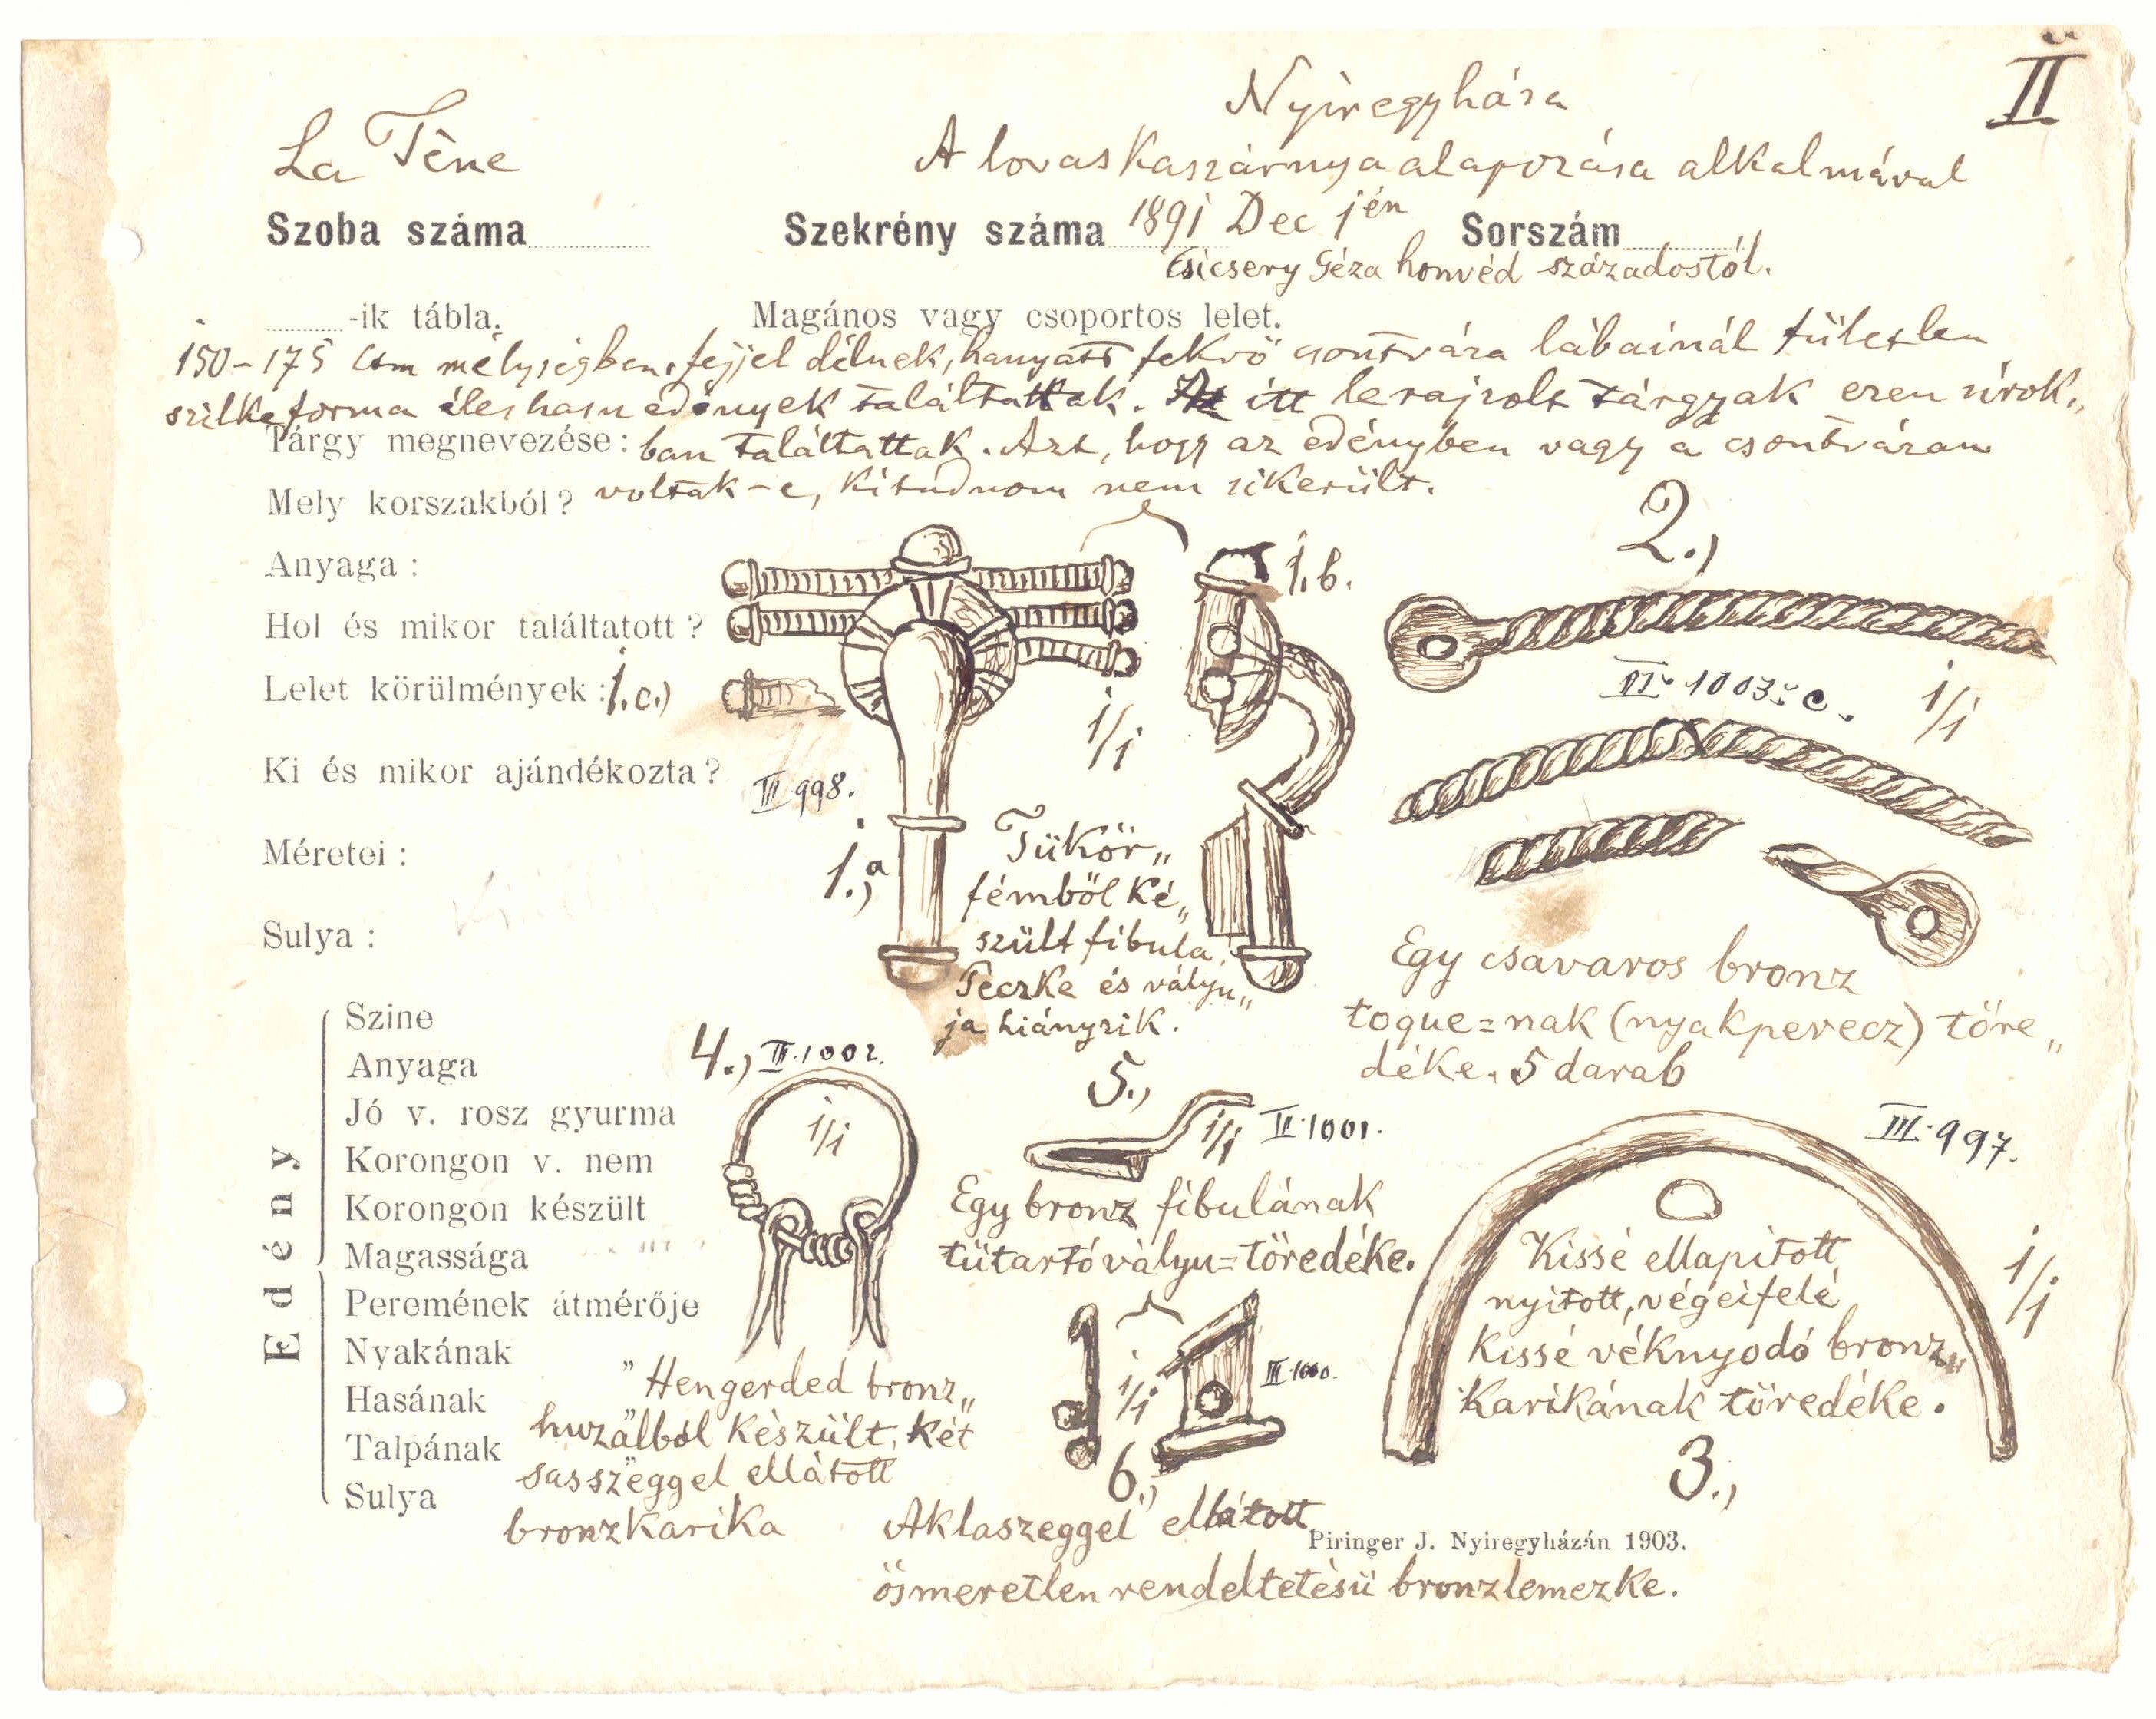 II
Nyiregyháza
La Tène
A lovas kaszárnya alapozása alkalmával
Szoba száma
Szekrény száma 1891 Dec 1én Sorszám
Csicsery Géza honvéd századostól.
-ik tábla. Magános vagy csoportos lelet.
150-175 ctm mélységben, fejjel délnek, hanyatt fekvő csontváza lábainál fületlen
szilkeforma éles hasu edények találtattak. Az itt lerajzolt tárgyak ezen sírok„
Tárgy megnevezése: ban találtattak. Azt, hogy az edényben vagy a csontvázan
Mely korszakból? voltak-e, kitudnom nem sikerült.
Anyaga :
Hol és mikor találtatott ?
Lelet körülmények : 1.c.)
Ki és mikor ajándékozta ?
Méretei :
Sulya :
1.b.
1/1
III 998.
1.,a
Tükör„
fémből ké„
szült fibula!
Teczke és vályu„
ja hiányzik.
2.,
II. 1003. c.
1/1
Egy csavaros bronz
toque=nak (nyakperecz) töre„
déke. 5 darab
Edény
Szine
Anyaga
Jó v. rosz gyurma
Korongon v. nem
Korongon készült
Magassága
Peremének átmérője
Nyakának
Hasának
Talpának
Sulya
4., II. 1002.
1/1
"Hengerded bronz„
huzalból készült, két
sasszeggel ellátott
bronzkarika
5.,
1/1 II. 1001.
Egy bronz fibulának
tütartó vályu=töredéke.
1/1
III. 1000.
6.,
Aklaszeggel ellátott
ösmeretlen rendeltetésü bronzlemezke.
III. 997.
Kissé ellapitott,
nyitott, végeifelé
kissé véknyodó bronz„
karikának töredéke.
1/1
3.,
Piringer J. Nyiregyházán 1903.